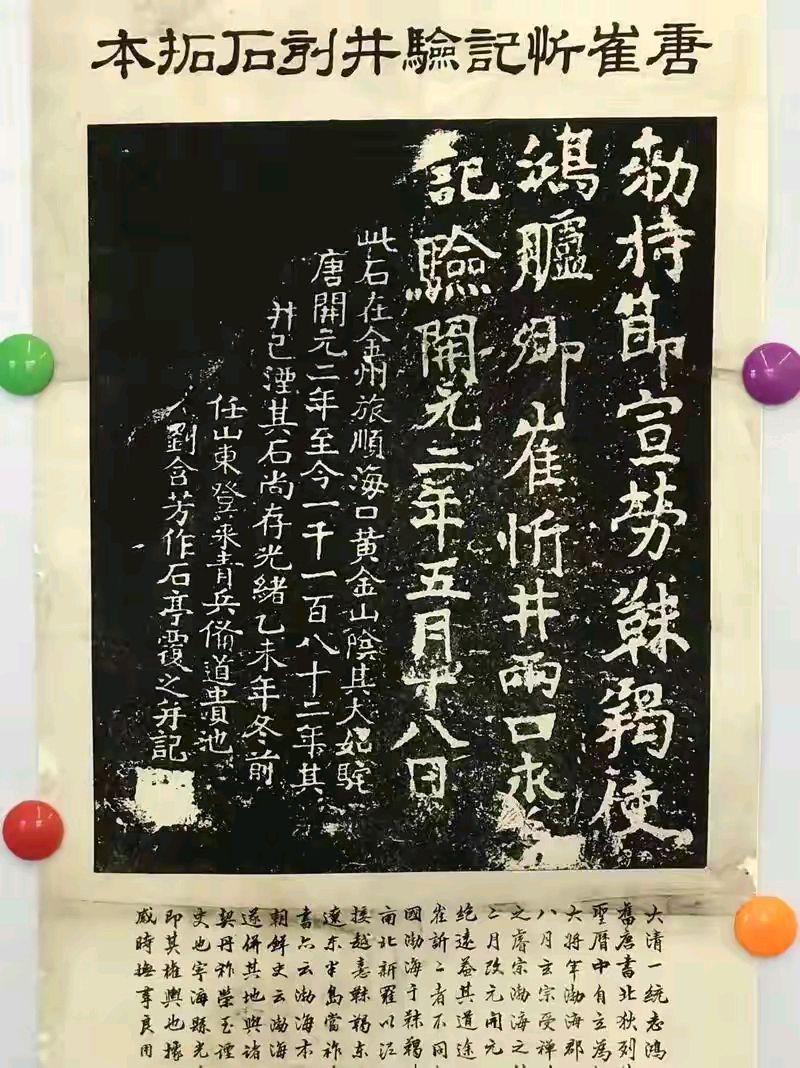 唐崔忻記驗井刻石拓本
勅持節宣勞靺羯使
鴻臚卿崔忻井兩口永
記驗開元二年五月十八日
此石在金州旅順海口黃金山陰其大如駝
唐開元二年至今一千一百八十二年其
井已湮其石尚存光緒乙未年冬前
任山東登萊青兵備道貴池
劉含芳作石亭覆之并記
大清一統志鴻
舊唐書北狄列
聖曆中自立為
大將軍渤海郡
八月玄宗受禪
之睿宗渤海之
二月改元開元
絕遠益其道途
崔訢二者不同
國渤海于靺鞨
南北新羅以泥
接越憙靺鞨東
遼東半島當祚
書云渤海本
朝鮮史云渤海
遂併其地與諸
契丹祚榮
史也寧海縣光
即其權輿也據
感時撫事良用